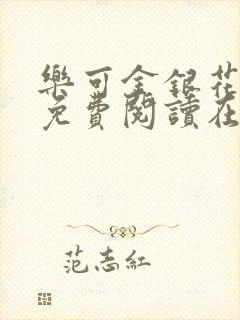 樂可金銀花
免費閱讀在
范志紅